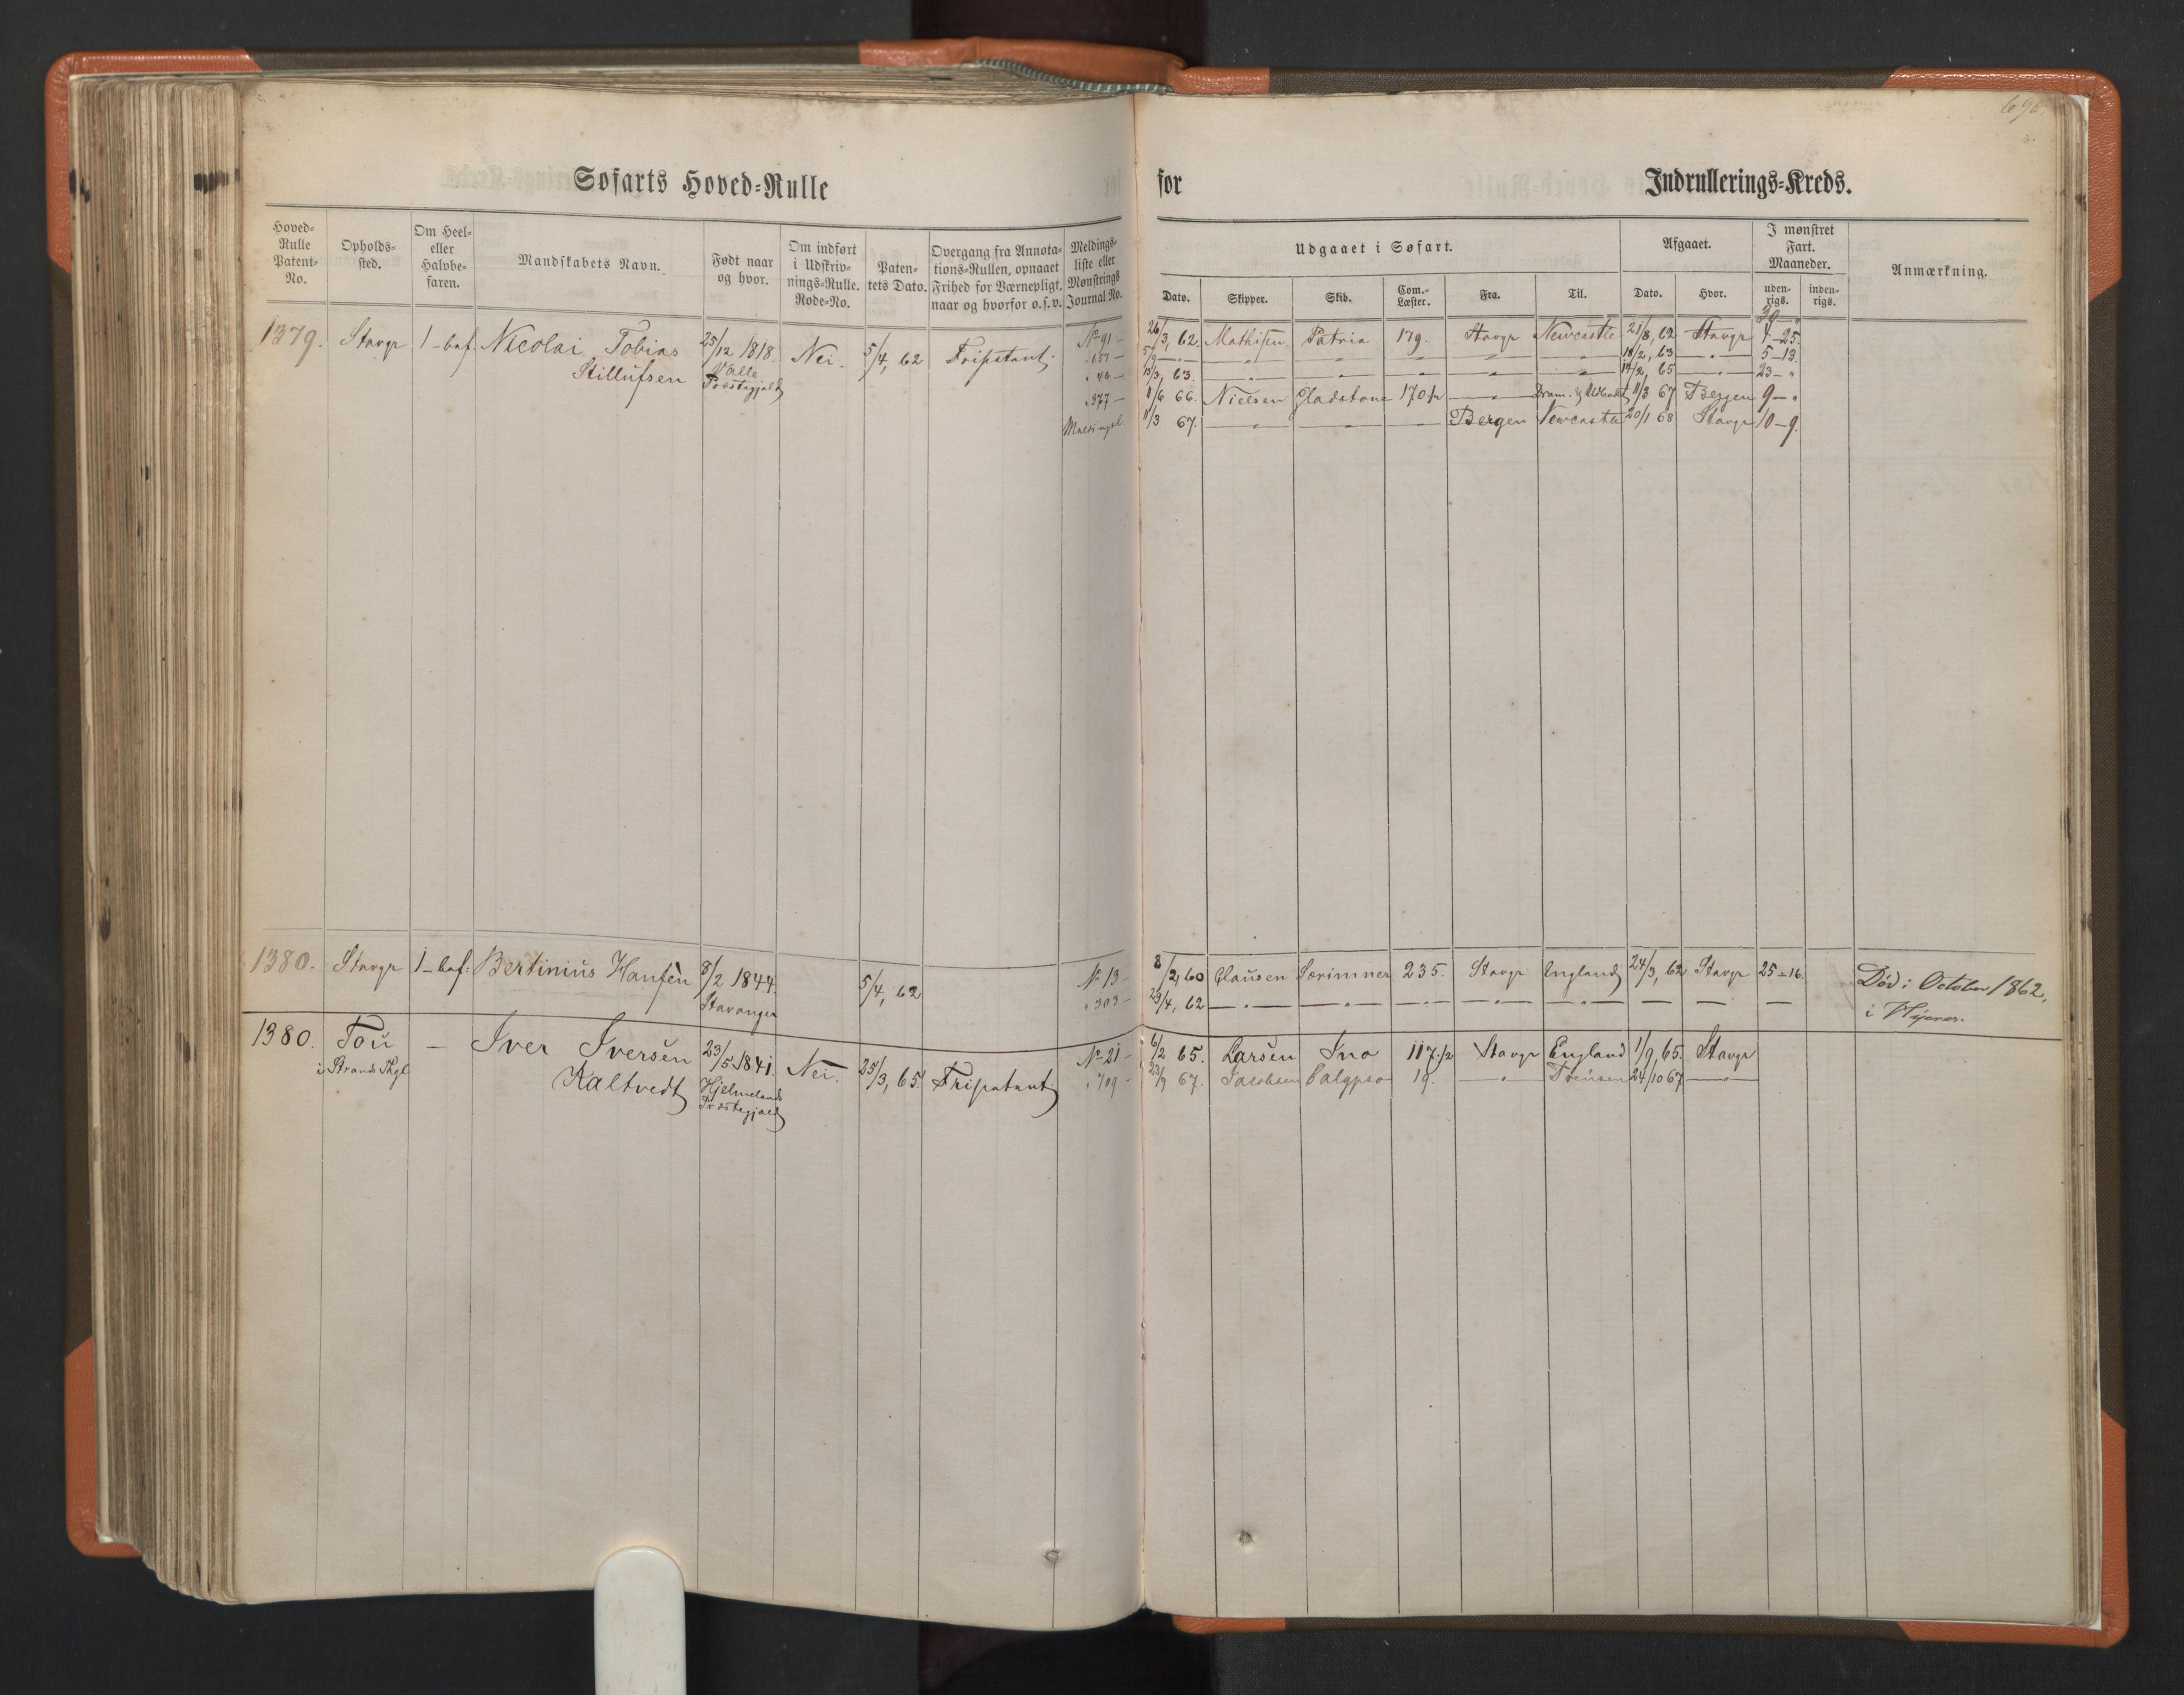 696
Søfarts Hoved-Rulle
for
Indrullerings-Kreds.
Hoved-Rulle Patent-No. | Opholds-sted. | Om Heel- eller Halvbe-faren. | Mandskabets Navn. | Født naar og hvor. | Om indført i Udskriv-nings-Rulle. Rode-No. | Paten-tets Dato. | Overgang fra Annota-tions-Rullen, opnaaet Frihed for Værnepligt, naar og hvorfor o.s.v. | Meldings-liste eller Mønstrings Journal No.
Udgaaet i Søfart. | Afgaaet. | I mønstret Fart. Maaneder. | Anmærkning.
Dato. | Skipper. | Skib. | Com.-Læster. | Fra. | Til. | Dato. | Hvor. | uden-rigs. | inden-rigs.
1379. Stavgr 1-bef. Nicolai Tobias 25/12 1818. Nei. 5/4, 62 Fripatent. No 91 –
Stillufsen Valle Præstegjæld
" 46 –
" 377 –
Meldingsl.
30 – "
26/3, 62. Mathisen Patria 179. Stavgr Newcastle 21/8, 62 Stavgr 4–25.
5/9 – " – 18/2, 63 – " – 5–13.
13/3, 63. 14/2, 65 – " – 23– "
1/6 66. Nielsen Gladstone 170½ – " – 11/3 67 Bergen 9– "
11/3 67. – " – Bergen Newcastle 20/1 68 Stavgr 10–9.
1380. Stavgr 1-bef. Bertinius Hansen 8/2 1844. 5/4, 62 No 13 –
Stavanger " 303 –
8/2, 60 Clausen Særimner 235. Stavgr England 24/3, 62 Stavgr 25–16. Død i October 1862,
23/4, 62 – " – – " – – " – – " – – " – — — —
1380. Tou – Iver Iversen 23/5 1841. Nei. 25/3, 65. Fripatent. No 21 –
i Strands Pgl Kaltvedt Hjelmelands Præstegjæld " 709 –
6/2 65. Larsen Ino 117.½ Stavgr England 1/9, 65. Stavgr
23/9 67. Jacobsen Calypso 19. – " – 24/10 67 – " –